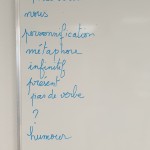 nous
personnification
métaphore
infinitif
présent
pas de verbe
?
humour